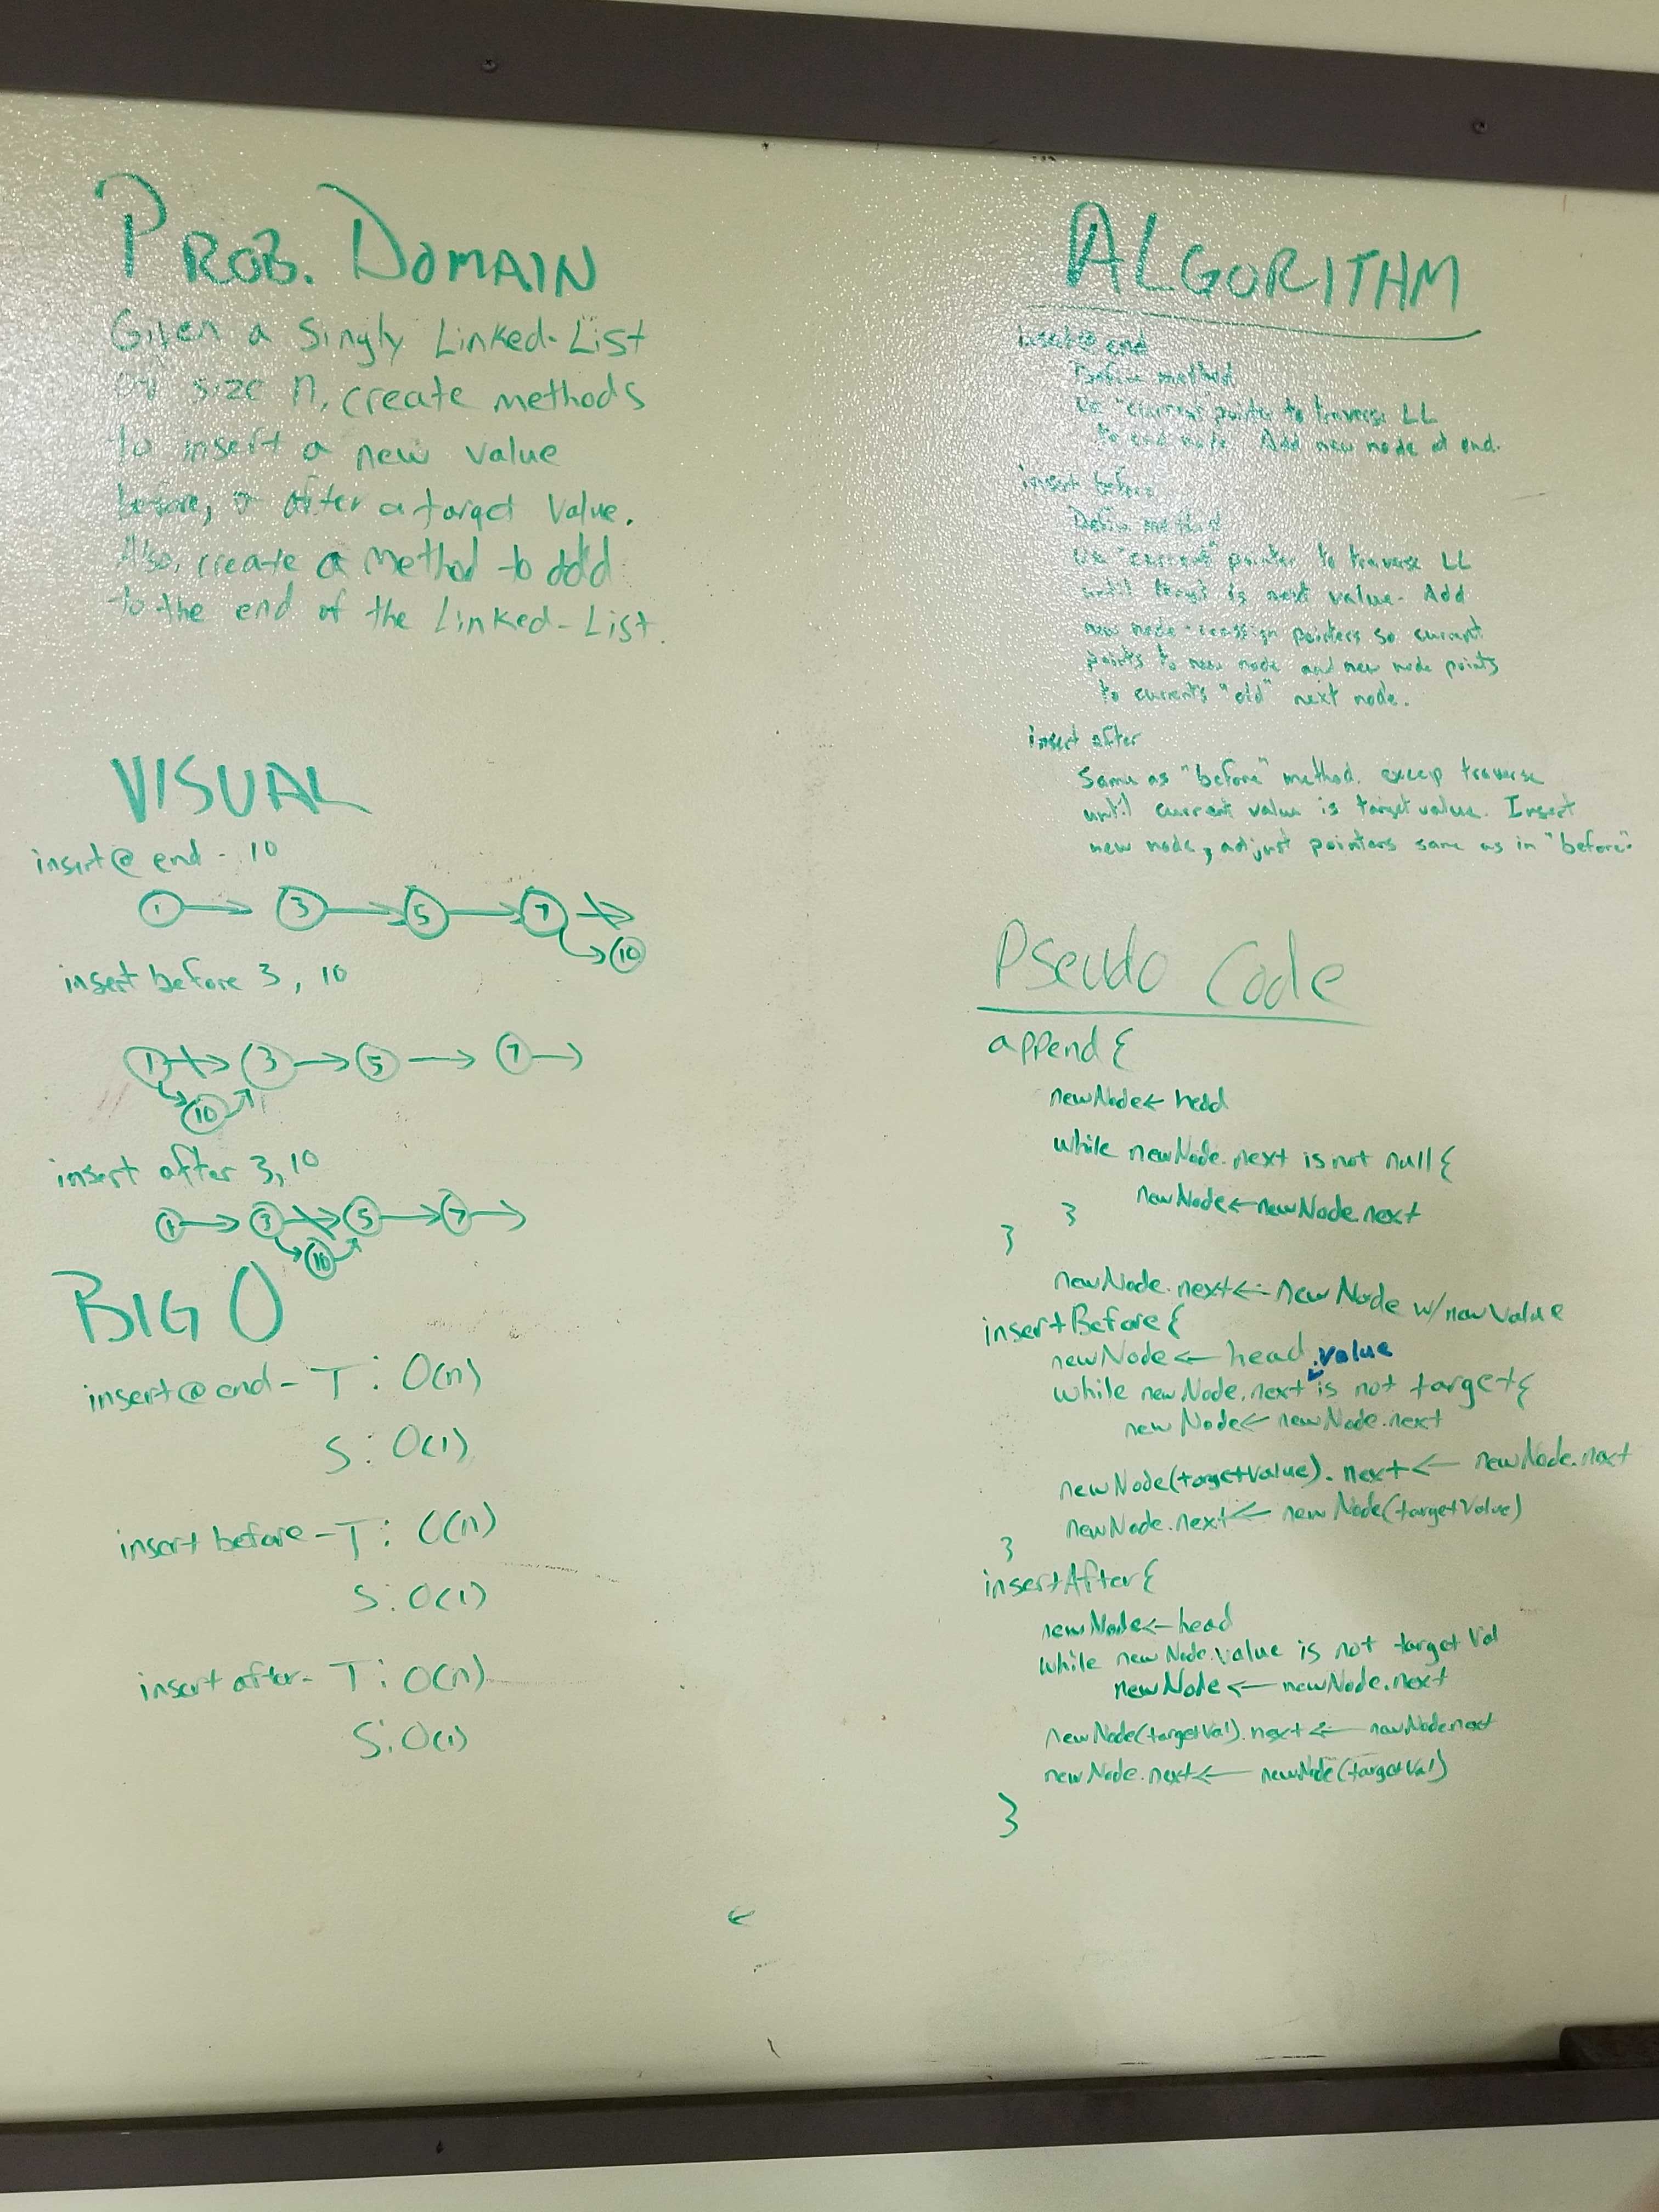 PROB. DOMAIN
Given a Singly Linked-List
of size n, create methods
to insert a new value
before, or after a target value.
Also, create a method to add
to the end of the Linked-List.
VISUAL
insert@ end - 10
1 → 3 → 5 → 7 →
10
insert before 3, 10
1 → 3 → 5 → 7 →
10
insert after 3, 10
1 → 3 → 5 → 7 →
10
BIG O
insert@end - T: O(n)
S: O(1)
insert before - T: O(n)
S: O(1)
insert after - T: O(n)
S: O(1)
ALGORITHM
insert@ end
Define method
Use "current" pointer to traverse LL
to end node. Add new node at end.
insert before
Define method
Use "current" pointer to traverse LL
until target is next value. Add
new node reassign pointers so current
points to new node and new node points
to current's "old" next node.
insert after
Same as "before" method, excep traverse
until current value is target value. Insert
new node, adjust pointers same as in "before".
Pseudo Code
append {
newNode ← head
while newNode.next is not null {
newNode ← newNode.next
}
}
newNode.next ← newNode w/ newValue
insertBefore {
newNode ← head
.value
while newNode.next is not target {
newNode ← newNode.next
newNode(targetValue).next ← newNode.next
newNode.next ← newNode(targetValue)
}
insertAfter {
newNode ← head
while newNode.value is not targetVal
newNode ← newNode.next
newNode(targetVal).next ← newNode.next
newNode.next ← newNode(targetVal)
}
←